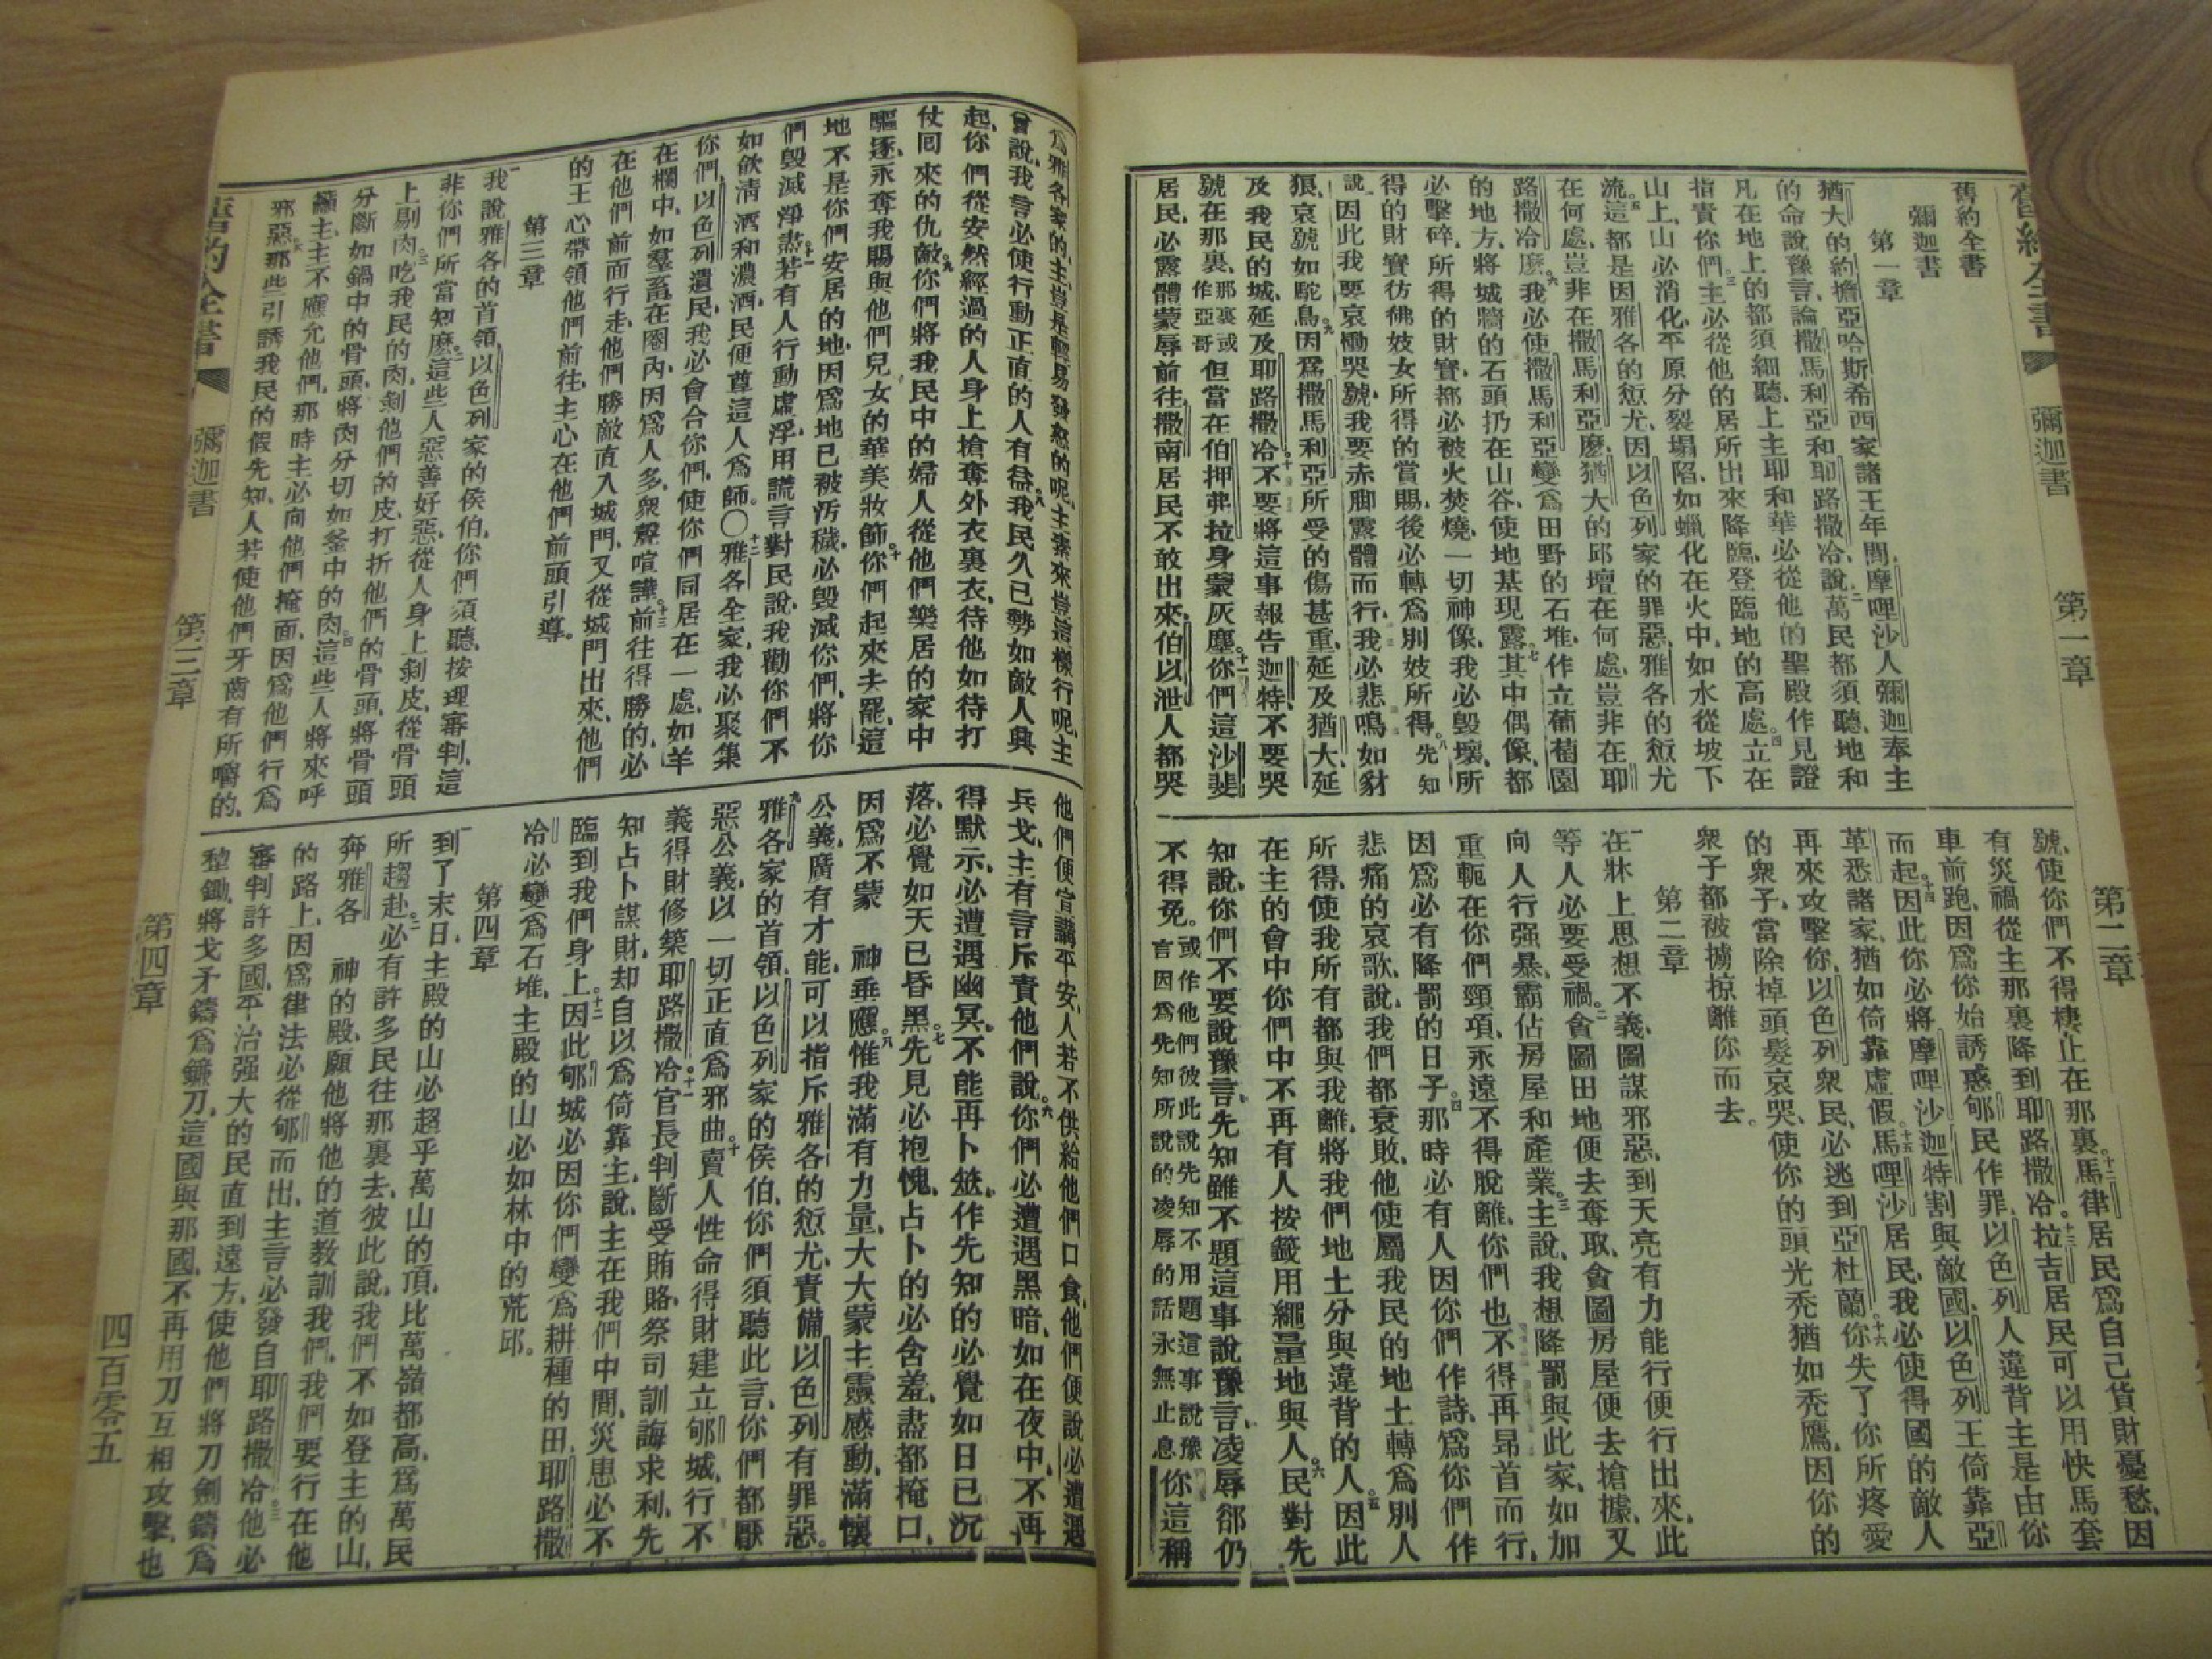 舊約全書 彌迦書 第一章 第二章
舊約全書
彌迦書
第一章
猶大的約擔亞哈斯希西家諸王年間摩哩沙人彌迦奉主
的命說豫言論撒馬利亞和耶路撒冷說二萬民都須聽地和
凡在地上的都須細聽上主耶和華必從他的聖殿作見證
指責你們三主必從他的居所出來降臨登臨地的高處四立在
山上山必消化平原分裂塌陷如蠟化在火中如水從坡下
流五這都是因雅各的愆尤因以色列家的罪惡雅各的愆尤
在何處豈非在撒馬利亞麼猶大的邱壇在何處豈非在耶
路撒冷麼六我必使撒馬利亞變爲田野的石堆作立葡萄園
的地方將城牆的石頭扔在山谷使地基現露七其中偶像都
必擊碎所得的財寶都必被火焚燒一切神像我必毀壞所
得的財寶彷彿妓女所得的賞賜後必轉爲別妓所得八先知
說因此我要哀慟哭號我要赤脚露體而行我必悲鳴如豺
狼哀號如駝鳥九因爲撒馬利亞所受的傷甚重延及猶大延
及我民的城延及耶路撒冷十不要將這事報告迦特不要哭
號在那裏那裏或作亞哥但當在伯押弗拉身蒙灰塵十一你們這沙斐
居民必露體蒙辱前往撒南居民不敢出來伯以泄人都哭
號使你們不得棲止在那裏十二馬律居民爲自己貨財憂愁因
有災禍從主那裏降到耶路撒冷十三拉吉居民可以用快馬套
車前跑因爲你始誘惑郇民作罪以色列人違背主是由你
而起十四因此你必將摩哩沙迦特割與敵國以色列王倚靠亞
革悉諸家猶如倚靠虛假十五馬哩沙居民我必使得國的敵人
再來攻擊你以色列衆民必逃到亞杜蘭十六你失了你所疼愛
的衆子當除掉頭髮哀哭使你的頭光禿猶如禿鷹因你的
衆子都被擄掠離你而去
第二章
一在牀上思想不義圖謀邪惡到天亮有力能行便行出來此
等人必要受禍二貪圖田地便去奪取貪圖房屋便去搶據又
向人行强暴霸佔房屋和產業三主說我想降罰與此家如加
重軛在你們頸項永遠不得脫離你們也不得再昻首而行
因爲必有降罰的日子四那時必有人因你們作詩爲你們作
悲痛的哀歌說我們都衰敗他使屬我民的地土轉爲別人
所得使我所有都與我離將我們地土分與違背的人五因此
在主的會中你們中不再有人按籤用繩量地與人六民對先
知說你們不要說豫言先知雖不題這事說豫言凌辱郤仍
不得免或作他們彼此說先知不用題這事說豫言因爲先知所說的凌辱的話永無止息你這稱
爲雅各家的主豈是輕易發怒的呢主素來豈這樣行呢主
曾說我言必使行動正直的人有益八我民久已勢如敵人興
起你們從安然經過的人身上搶奪外衣裏衣待他如待打
仗囘來的仇敵九你們將我民中的婦人從他們樂居的家中
驅逐永奪我賜與他們兒女的華美妝飾十你們起來去罷這
地不是你們安居的地因爲地已被汚穢必毀滅你們將你
們毀滅淨盡十一若有人行動虛浮用謊言對民說我勸你們不
如飲淸酒和濃酒民便尊這人爲師〇十二雅各全家我必聚集
你們以色列遺民我必會合你們使你們同居在一處如羊
在欄中如羣畜在圈內因爲人多衆聲喧譁十三前往得勝的必
在他們前而行走他們勝敵直入城門又從城門出來他們
的王心帶領他們前往主心在他們前頭引導
第三章
一我說雅各的首領以色列家的侯伯你們須聽按理審判這
非你們所當知麽二這些人惡善好惡從人身上剝皮從骨頭
上剔肉三吃我民的肉剝他們的皮打折他們的骨頭將骨頭
分斷如鍋中的骨頭將肉分切如釜中的肉四這些人將來呼
籲主主不應允他們那時主必向他們掩面因爲他們行爲
邪惡五那些引誘我民的假先知人若使他們牙齒有所嚼的
他們便宣講平安人若不供給他們口食他們便說必遭遇
兵戈主有言斥責他們說六你們必遭遇黑暗如在夜中不再
得默示必遭遇幽冥不能再卜筮作先知的必覺如日已沉
落必覺如天已昏黑七先見必抱愧占卜的必含羞盡都掩口
因爲不蒙 神垂應八惟我滿有力量大大蒙主靈感動滿懷
公義廣有才能可以指斥雅各的愆尤責備以色列有罪惡
九雅各家的首領以色列家的侯伯你們須聽此言你們都厭
惡公義以一切正直爲邪曲十賣人性命得財建立郇城行不
義得財修築耶路撒冷十一官長判斷受賄賂祭司訓誨求利先
知占卜謀財却自以爲倚靠主說主在我們中間災患必不
臨到我們身上十二因此郇城必因你們變爲耕種的田耶路撒
冷必變爲石堆主殿的山必如林中的荒邱
第四章
一到了末日主殿的山必超乎萬山的頂比萬嶺都高爲萬民
所趨赴二必有許多民往那裏去彼此說我們不如登主的山
奔雅各 神的殿願他將他的道敎訓我們我們要行在他
的路上因爲律法必從郇而出主言必發自耶路撒冷三他必
審判許多國平治强大的民直到遠方使他們將刀劍鑄爲
犂鋤將戈矛鑄爲鐮刀這國與那國不再用刀互相攻擊也
舊約全書 彌迦書 第三章 第四章 四百零五